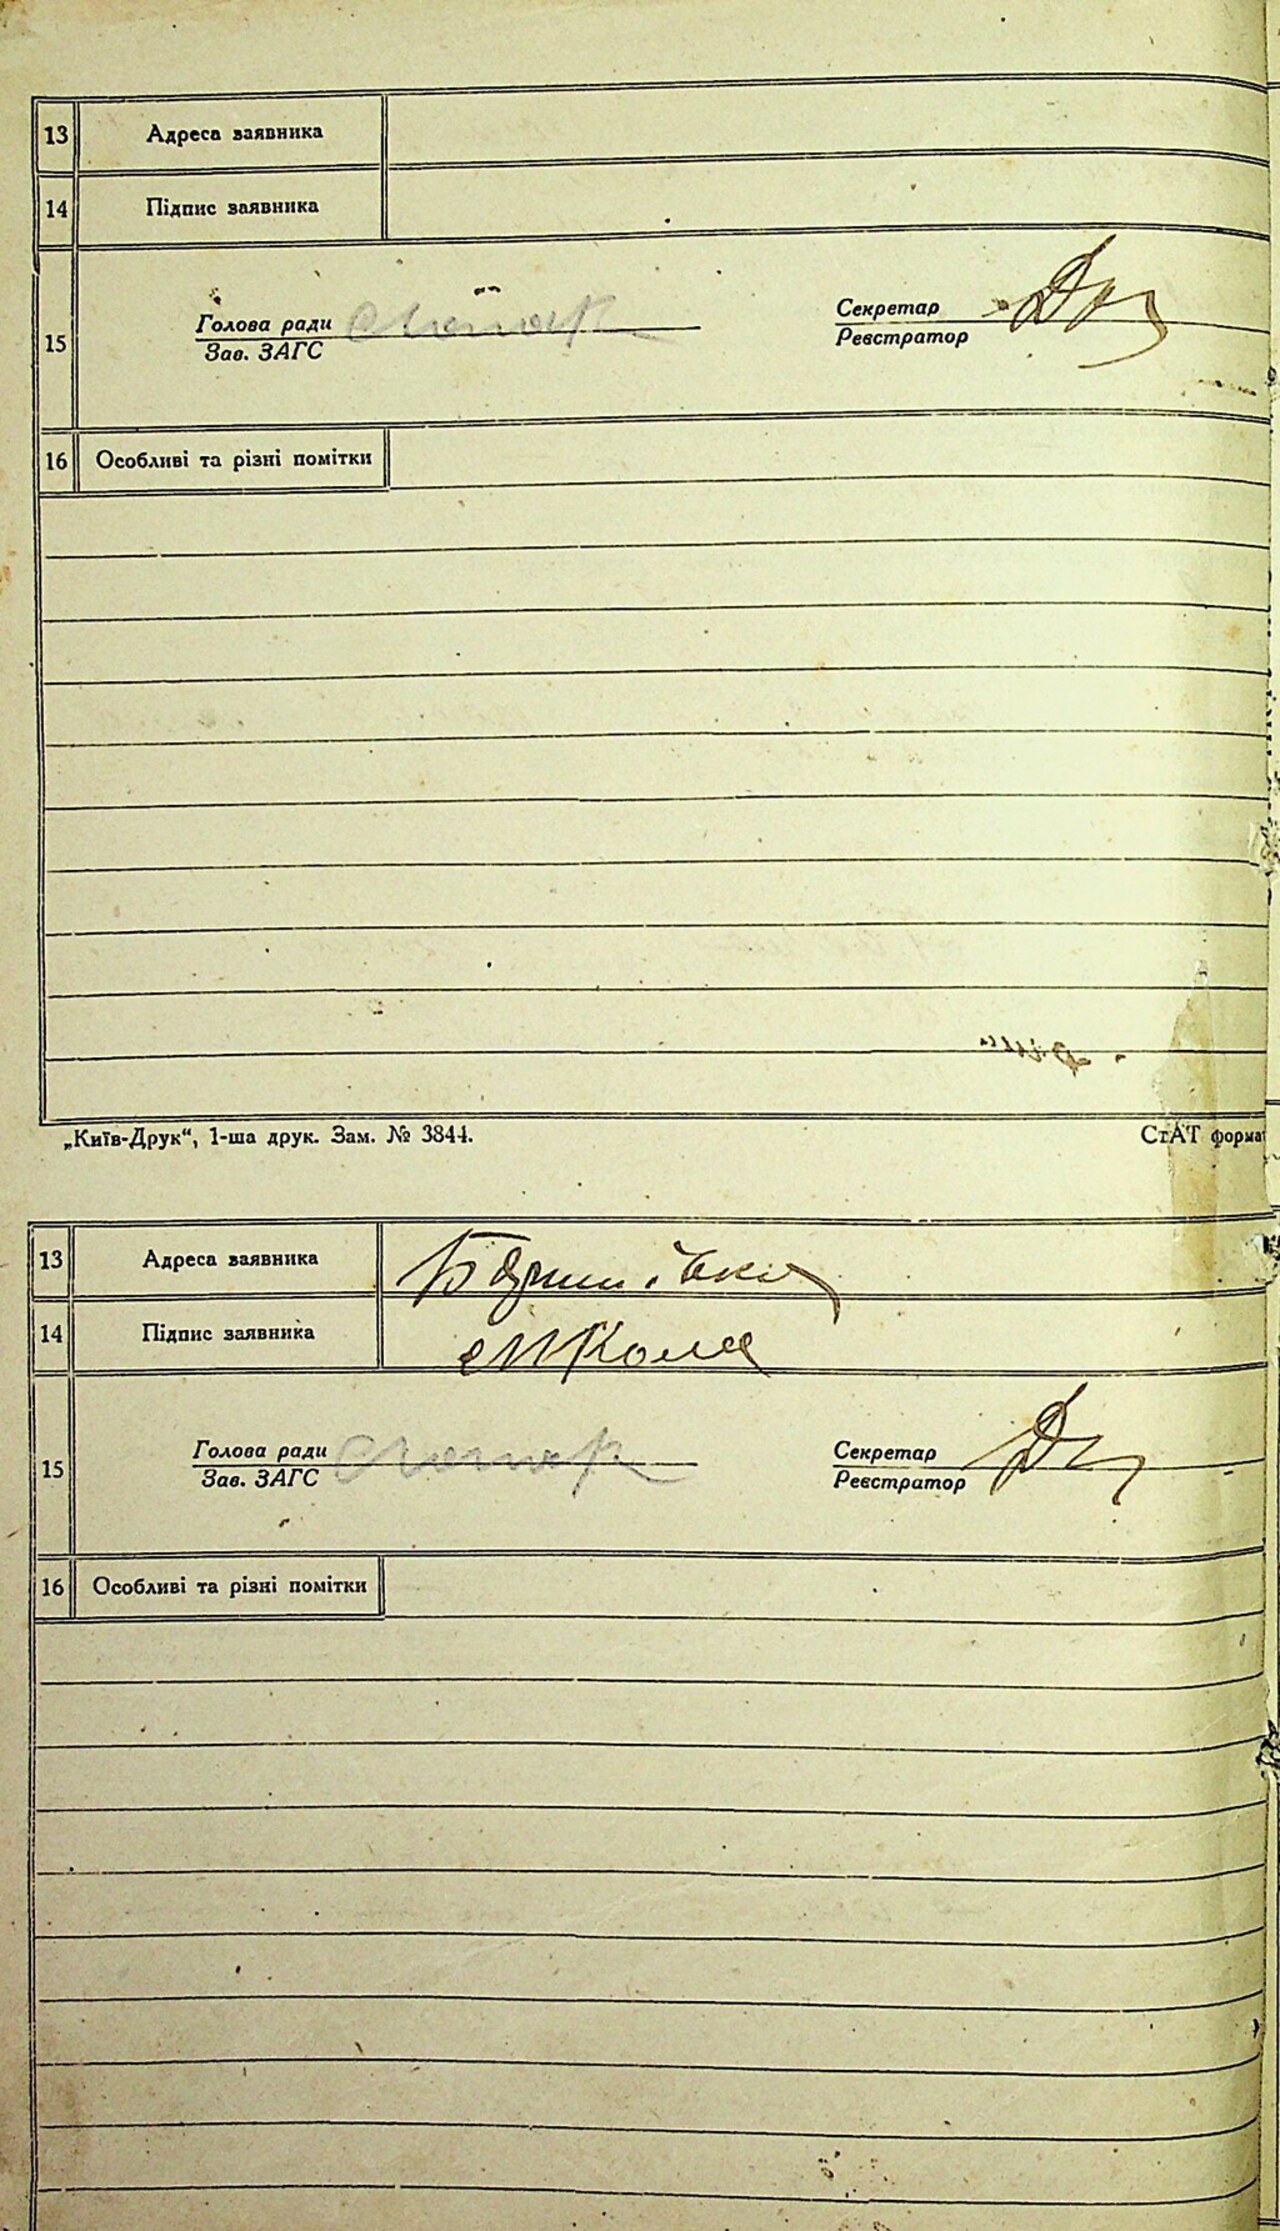 13 Адреса заявника
14 Підпис заявника
15 Голова ради Секретар
Зав. ЗАГС Реєстратор
16 Особливі та різні помітки
„Київ-Друк“, 1-ша друк. Зам. № 3844. СтАТ формат
13 Адреса заявника
14 Підпис заявника Микола
15 Голова ради Секретар
Зав. ЗАГС Реєстратор
16 Особливі та різні помітки